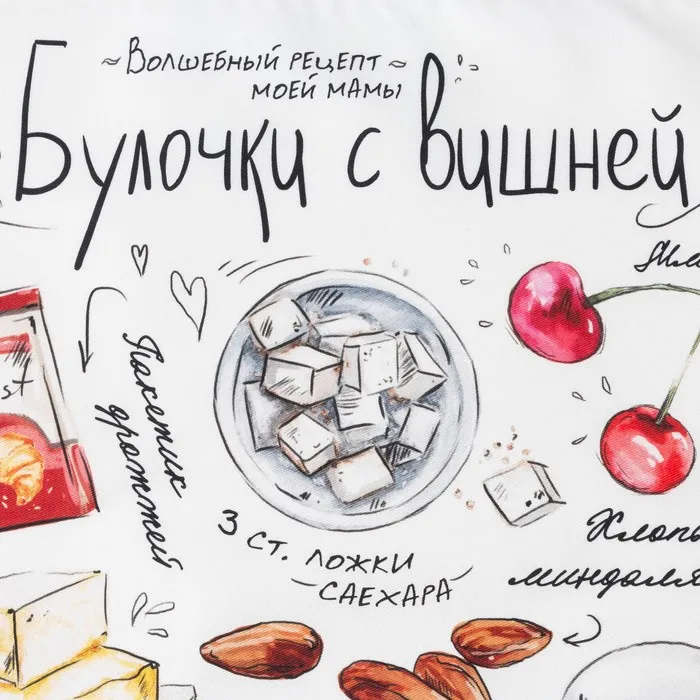 ~ Волшебный рецепт ~
моей мамы
Булочки с вишней
st
Пакетик
дрожжей
3 ст. ложки
саехара
миндаля